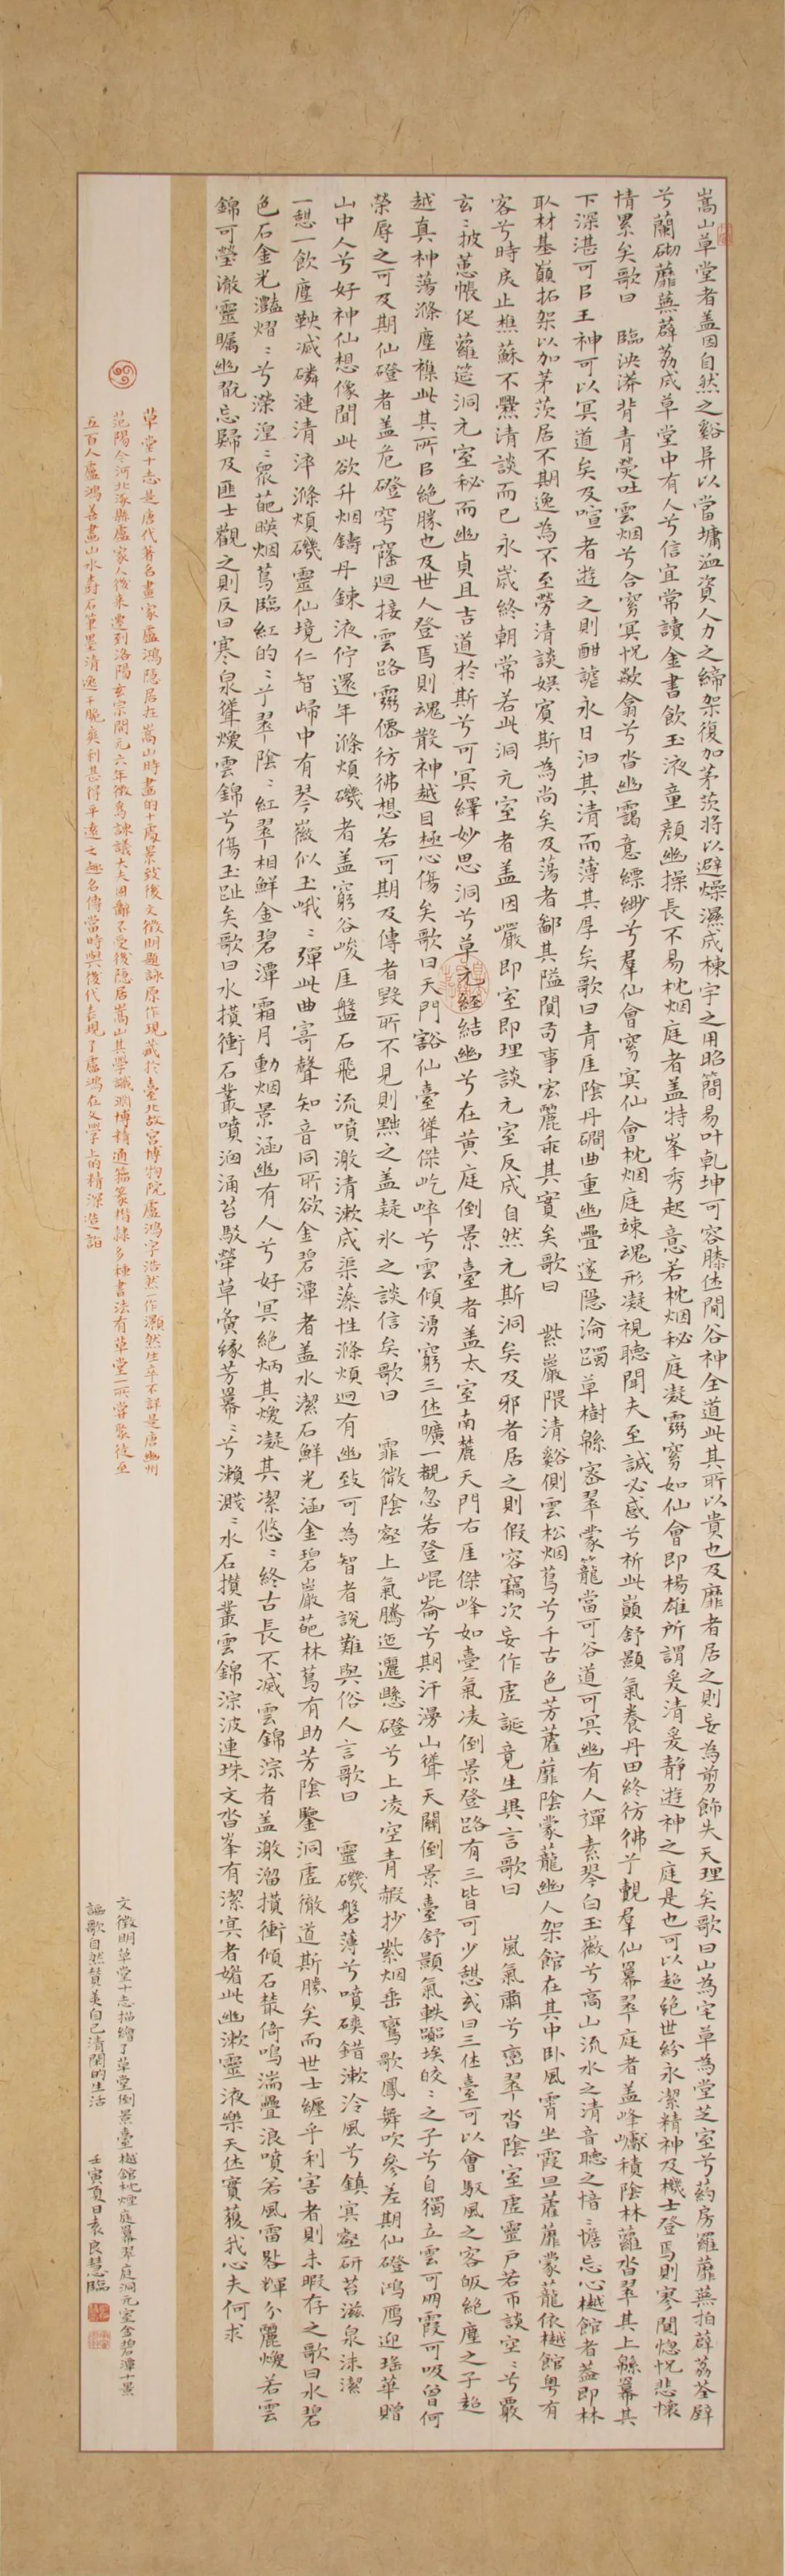 嵩山草堂者盖因自然之谿昇以當墉洫資人力之締架復加茅茨將以避燥濕成棟宇之用昭簡易叶乾坤可容膝休閒谷神全道此其所以貴也及靡者居之則妄為剪飾失天理矣歌曰山為宅草為堂芝室兮葯房羅靡蕪拍薜荔荃辟
兮蘭砌靡蕪薜荔成草堂中有人兮信宜常讀金書飲玉液童顏幽操長不易枕烟庭者盖特峯秀起意若枕烟秘庭凝靄窅如仙會即楊雄所謂爰清爰靜遊神之庭是也可以超絕世紛永潔精神及機士登焉則寒閴惚怳悲懷
情累矣歌曰 臨泱漭背青熒吐雲烟兮合窅冥怳欻翕兮沓幽靄意縹緲兮羣仙會窅冥仙會枕烟庭竦魂形凝視聽聞夫至誠必感兮祈此巔舒顥氣養丹田終彷彿兮覿羣仙冪翠庭者盖峰巘積陰林蘿沓翠其上緜冪其
下深湛可㠯王神可以冥道矣及喧者遊之則酣謔永日汩其清而薄其厚矣歌曰青厓陰丹磵曲重幽疊邃隱淪躅草樹緜密翠蒙籠當可谷道可冥幽有人彈素琴白玉徽兮高山流水之清音聽之愔:憺忘心樾館者盖即林
取材基巔拓架以加茅茨居不期逸為不至勞清談娱賓斯為尚矣及蕩者鄙其隘閴苟事宏麗乖其實矣歌曰 紫巖隈清谿側雲松烟蔦兮千古色芳藿蘼陰蒙蘢幽人架館在其中卧風霄坐霞旦藿蘼蒙蘢依樾館粤有
客兮時戾止樵蘇不爨清談而已永歲終朝常若此洞元室者盖因巖即室即理談元室反成自然元斯洞矣及邪者居之則假容竊次妄作虛誕竟生異言歌曰 嵐氣肅兮巒翠沓陰室虛靈戶若帀談空:兮覈
玄:披蕙帳促蘿筵洞元室秘而幽貞且吉道於斯兮可冥繹妙思洞兮草元經結幽兮在黄庭倒景臺者盖太室南麓天門右厓傑峰如臺氣凌倒景登路有三皆可少憩或曰三休臺可以會馭風之客皈絕塵之子超
越真神蕩滌塵襟此其所㠯絕勝也及世人登焉則魂散神越目極心傷矣歌曰天門豁仙臺聳傑屹崪兮雲傾湧窮三休曠一覯忽若登崐崙兮期汗漫山聳天關倒景臺舒顥氣軼囂埃皎:之子兮自獨立雲可朋霞可吸曾何
榮辱之可及期仙磴者盖危磴穹窿迴接雲路靈僊彷彿想若可期及傳者毀所不見則黜之盖疑氷之談信矣歌曰 霏微陰壑上氣騰迤邐懸磴兮上凌空青霞抄紫烟垂鸞歌鳳舞吹參差期仙磴鴻鴈迎瑤華贈
山中人兮好神仙想像聞此欲升烟鑄丹鍊液佇還年滌煩磯者盖窮谷峻厓盤石飛流噴激清漱成渠藻性滌煩迥有幽致可為智者說難與俗人言歌曰 靈磯磐薄兮噴磢錯漱泠風兮鎮冥壑研苔滋泉沫潔
一憩一飲塵鞅滅磷漣清淬滌煩磯靈仙境仁智歸中有琴徽似玉峨:彈此曲寄聲知音同所欲金碧潭者盖水潔石鮮光涵金碧巖葩林蔦有助芳陰鑒洞虛徹道斯勝矣而世士纏乎利害者則未暇存之歌曰水碧
色石金光灩熠:兮濚湟:衆葩暎烟蔦臨紅的:兮翠陰:紅翠相鮮金碧潭霜月動烟景涵幽有人兮好冥絕炳其煥凝其潔悠:終古長不滅雲錦淙者盖激溜攢衝傾石叢倚鳴湍疊浪噴若風雷畧輝分麗煥若雲
錦可瑩澈靈矚幽翫忘歸及匪士觀之則反曰寒泉聳煥雲錦兮傷玉趾矣歌曰水攢衝石叢噴洄涌苔駁犖草夤缘芳冪:兮瀨濺:水石攢叢雲錦淙波連珠文沓峯有潔冥者媚此幽漱靈液樂天休實獲我心夫何求
草堂十志是唐代著名畫家盧鴻隱居在嵩山時畫的十處景致後文徵明題詠原作現藏於臺北故宮博物院盧鴻字浩然一作灝然生卒不詳是唐幽州
范陽今河北涿縣盧家人後来遷到洛陽玄宗開元六年徵為諫議大夫固辭不受後隱居嵩山其學識淵博精通籀篆楷隸多種書法有草堂一所嘗聚徒至
五百人盧鴻善畫山水樹石筆墨清逸干脆爽利甚得平遠之趣名傳當時與後代表現了盧鴻在文學上的精深造詣
文徵明草堂十志描繪了草堂倒景臺樾館枕煙庭冪翠庭洞元室金碧潭十景
謳歌自然贊美自己清閑的生活 壬寅夏日袁良慧臨